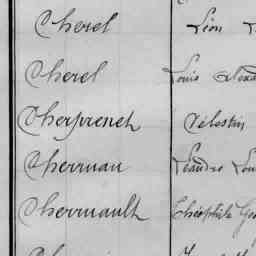 Cherel Léon
Cherel Louis
Cherprenet Célestin
Cherruau Léandre
Cherruault Théophile